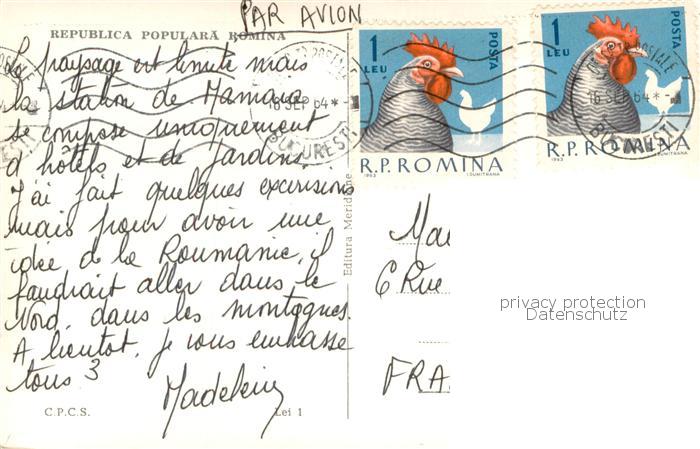 PAR AVION
REPUBLICA POPULARĂ ROMÎNĂ
Le paysage est limité mais
la station de Mamaia
se compose uniquement
d'hôtels et de jardins.
J'ai fait quelques excursions
mais pour avoir une
idée de la Roumanie, il
faudrait aller dans le
Nord, dans les montagnes.
A bientôt, je vous embrasse
tous 3
Madeleine
C.P.C.S.
Lei 1
Editura Meridiane
1 LEU
POSTA
R.P. ROMINA
1963
I.DUMITRANA
1 LEU
POSTA
R.P. ROMINA
1963
I.DUMITRANA
16 SEP 64 *
BUCURESTI
16 SEP 64 *
BUCURESTI
6 Rue
privacy protection
Datenschutz